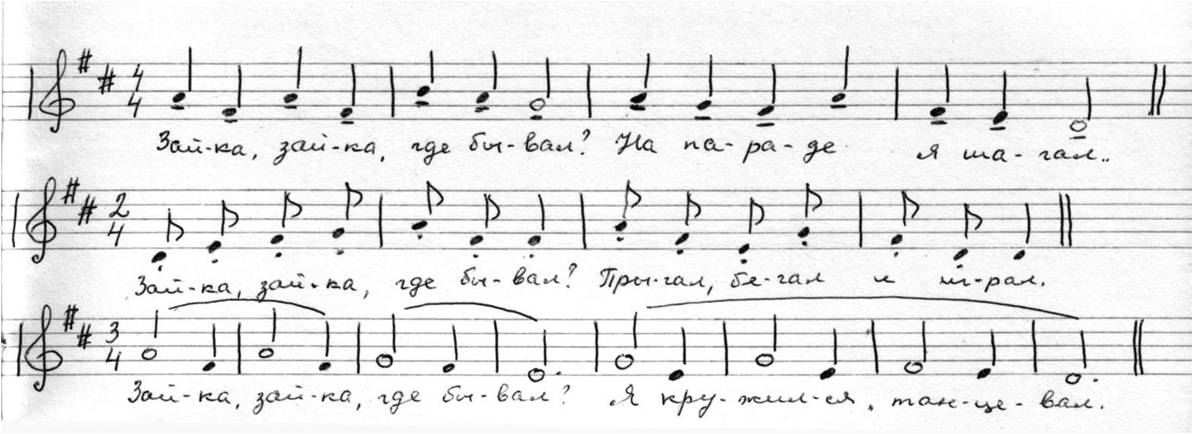 4/4
Зай-ка, зай-ка, где бы-вал? На па-ра-де я ша-гал..
2/4
Зай-ка, зай-ка, где бы-вал? Пры-гал, бе-гал и иг-рал.
3/4
Зай-ка, зай-ка, где бы-вал? Я кру-жил-ся, тан-це-вал.